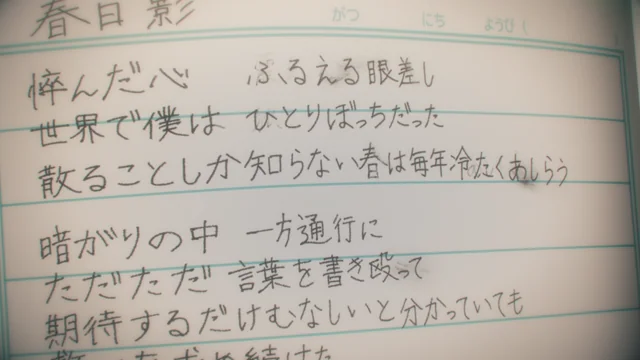 春日影 がつ にち ようび(
悴んだ心 ふるえる眼差し
世界で僕は ひとりぼっちだった
散ることしか知らない春は毎年冷たくあしらう
暗がりの中 一方通行に
ただただ 言葉を書き殴って
期待するだけむなしいと分かっていても
救いを求め続けた